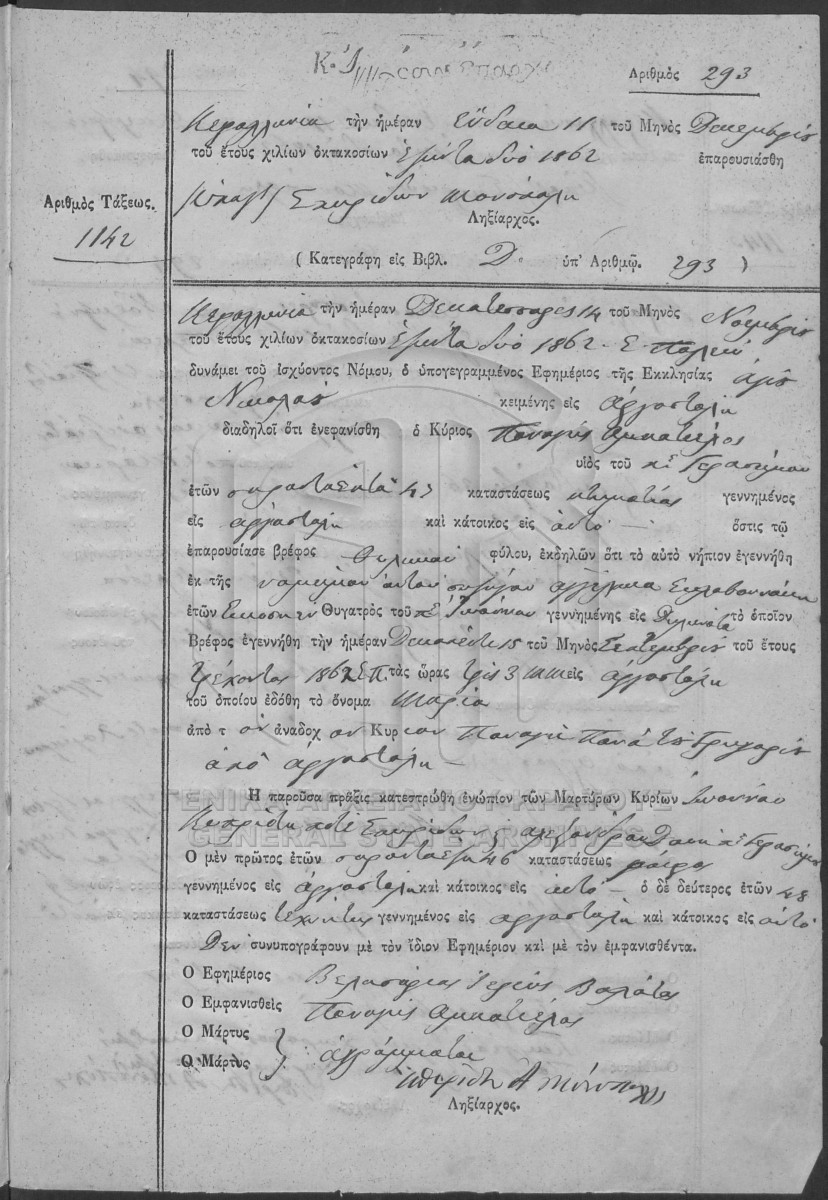 Ἀριθμὸς 293
Κεφαλληνία τὴν ἡμέραν ἕνδεκα 11 τοῦ Μηνὸς Δεκεμβρίου
τοῦ ἔτους χιλίων ὀκτακοσίων ἑξῆντα δύο 1862 ἐπαρουσιάσθη
Σπυρίδων
Ληξίαρχος.
Ἀριθμὸς Τάξεως.
1142
( Κατεγράφη εἰς Βιβλ. Δ. ὑπ' Ἀριθμῷ. 293 )
Κεφαλληνία τὴν ἡμέραν Δεκατέσσαρες 14 τοῦ Μηνὸς Νοεμβρίου
τοῦ ἔτους χιλίων ὀκτακοσίων ἑξῆντα δύο 1862. Ε. Παλαιόν
δυνάμει τοῦ ἰσχύοντος Νόμου, ὁ ὑπογεγραμμένος Ἐφημέριος τῆς Ἐκκλησίας ἁγίου
Νικολάου κειμένης εἰς ἀργοστόλι
διαδηλοῖ ὅτι ἐνεφανίσθη ὁ Κύριος Παναγῆς
υἱὸς τοῦ Γερασίμου
ἐτῶν 47 καταστάσεως κτηματίας γεννημένος
εἰς ἀργοστόλι καὶ κάτοικος εἰς αὐτό — ὅστις τῷ
ἐπαρουσίασε βρέφος Θηλυκοῦ φύλου, ἐκδηλῶν ὅτι τὸ αὐτὸ νήπιον ἐγεννήθη
ἐκ τῆς νομίμου αὐτοῦ συζύγου ἀγγέλικα
ἐτῶν Θυγατρὸς τοῦ Ἰωάννου γεννημένης εἰς Διλινάτα τὸ ὁποῖον
Βρέφος ἐγεννήθη τὴν ἡμέραν Δεκαπέντε 15 τοῦ Μηνὸς Σεπτεμβρίου τοῦ ἔτους
τρέχοντος 1862 Ε.Π. τὰς ὥρας τρῖς 3 εἰς ἀργοστόλι
τοῦ ὁποίου ἐδόθη τὸ ὄνομα Μαρία
ἀπὸ τ ὸν ἀνάδοχ ον Κύρ ιον Παναγῆ τοῦ Γρηγορίου
ἀπὸ ἀργοστόλι —
ΓΕΝΙΚΑ ΑΡΧΕΙΑ ΤΟΥ ΚΡΑΤΟΥΣ
GENERAL STATE ARCHIVES
Ἡ παροῦσα πρᾶξις κατεστρώθη ἐνώπιον τῶν Μαρτύρων Κυρίων Ἰωάννου
Σπυρίδων Γερασίμου
Ὁ μὲν πρῶτος ἐτῶν σαράντα ἕξη 46 καταστάσεως
γεννημένος εἰς ἀργοστόλι καὶ κάτοικος εἰς αὐτό — ὁ δὲ δεύτερος ἐτῶν 48
καταστάσεως τεχνίτης γεννημένος εἰς ἀργοστόλι καὶ κάτοικος εἰς αὐτό
Δεν συνυπογράφουν μὲ τὸν ἴδιον Ἐφημέριον καὶ μὲ τὸν ἐμφανισθέντα.
Ὁ Ἐφημέριος Ἱερεύς
Ὁ Ἐμφανισθεὶς Παναγῆς
Ὁ Μάρτυς
Ὁ Μάρτυς } ἀγράμματοι
Ληξίαρχος.